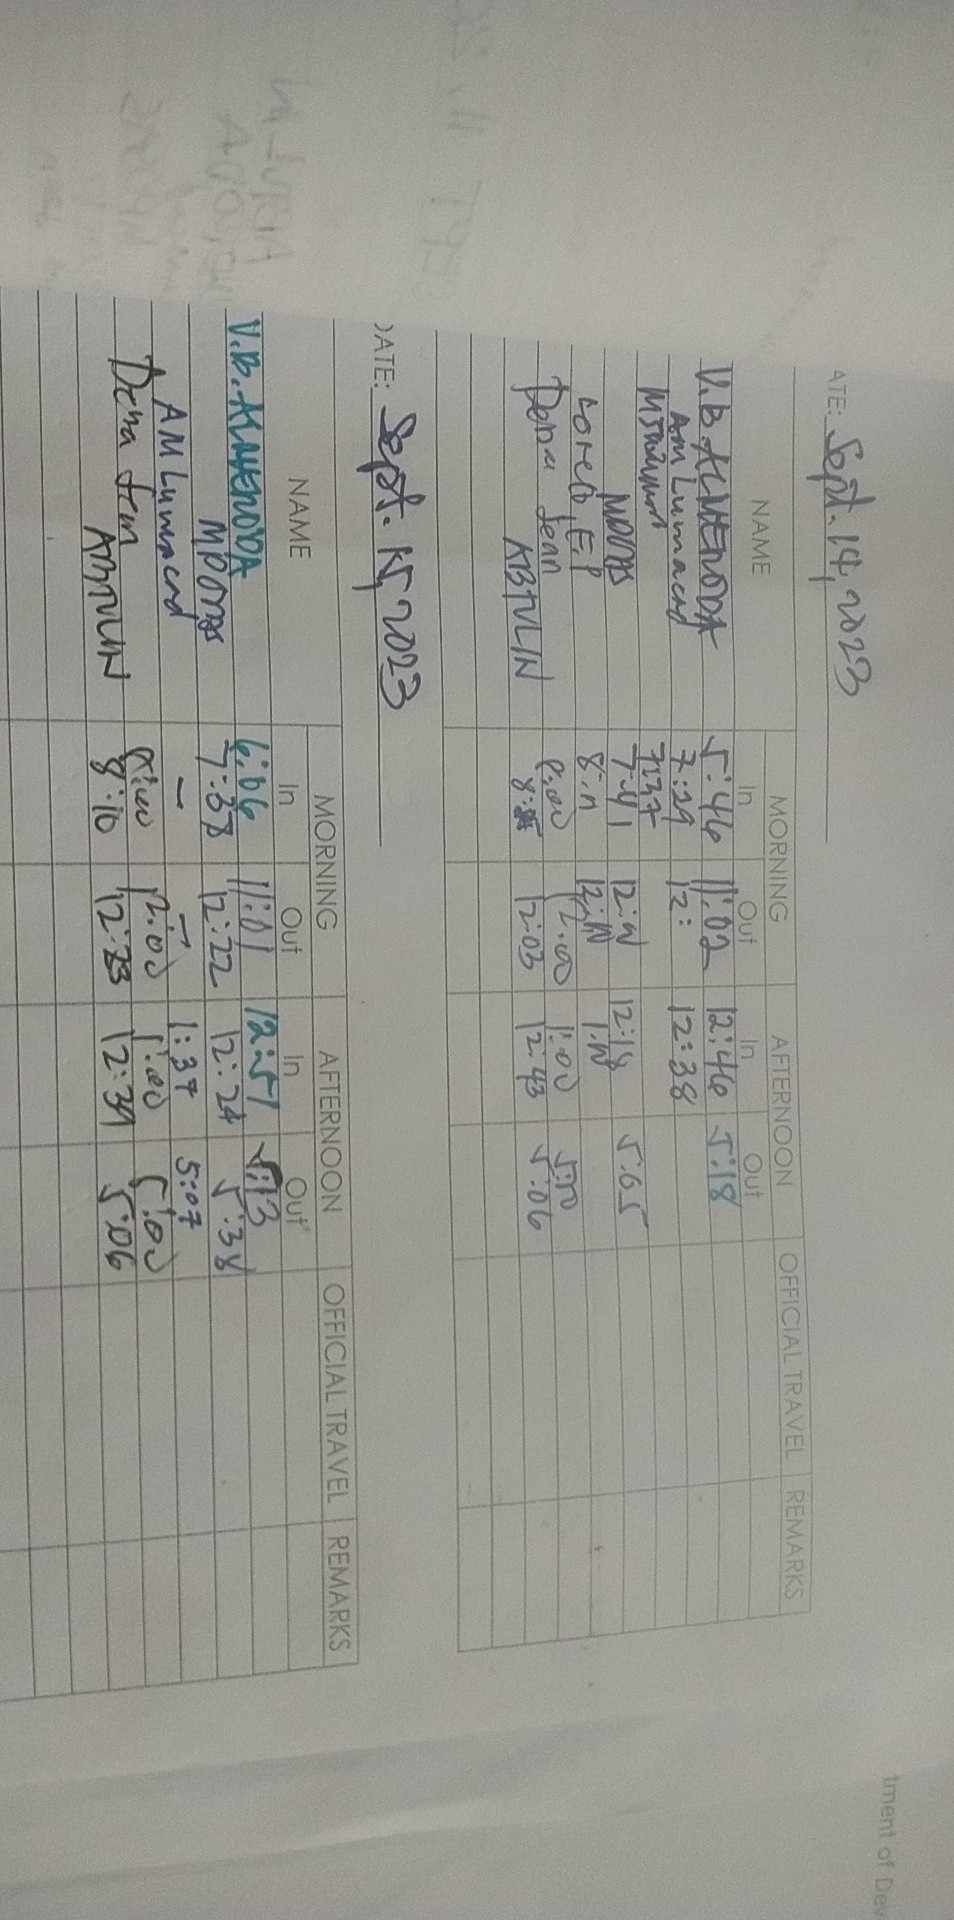 tment of Dev
ATE: Sept. 14, 2023
NAME MORNING AFTERNOON OFFICIAL TRAVEL REMARKS
In Out In Out
V.B ALMENODA 5:46 11:02 12:46 5:18
AM Lumacad 7:29 12: 12:38
7:37
7:41 12:N 12:18 5:05
Loreto, E.P 8:11 12:N 1:N
Dena Jean 8:00 12:00 1:00 5:00
ABTULIN 12:03 12:43 5:06
DATE: Sept. 15, 2023
NAME MORNING AFTERNOON OFFICIAL TRAVEL REMARKS
In Out In Out
V.B. ALMENODA 6:06 11:01 12:51 5:13
7:38 12:22 12:24 5:38
AM Lumacad - - 1:37 5:07
Dena Jean 8:00 12:00 1:00 5:00
ABTULIN 8:10 12:23 12:39 5:06